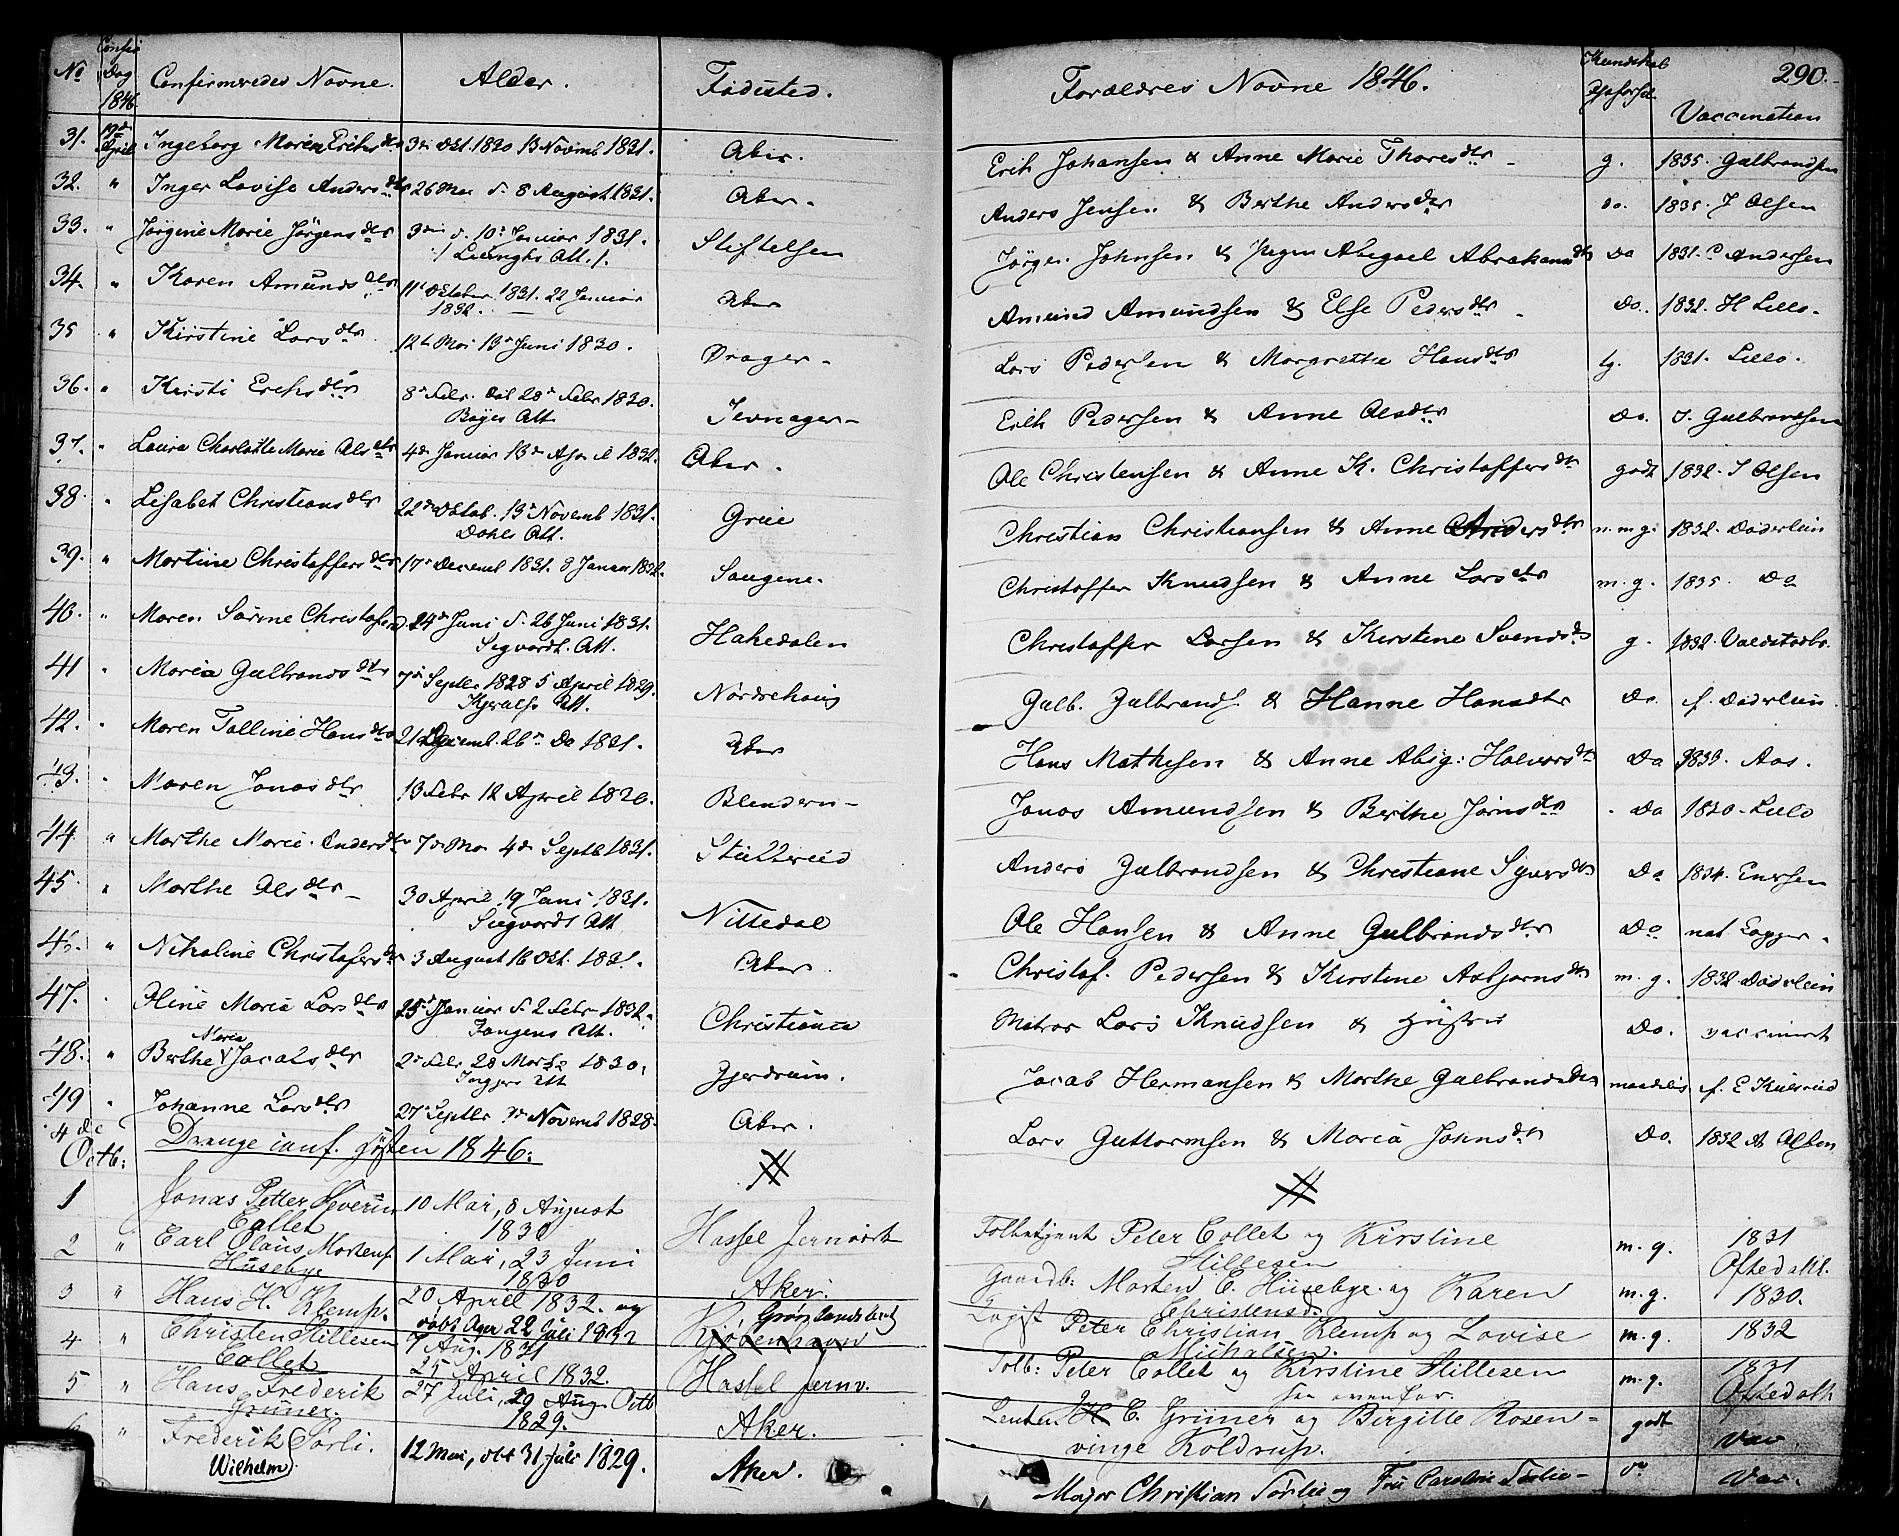 No Confir Dag 1846 Confirmeredes Navne. Alder. Fødested. Forældres Navne 1846. Kundskab Vaccination 290.
31. 19de April Ingeborg Maria Eriks dtr 3die Oct. 1830 13 Novemb 1831. Aker. Erik Johansen & Anne Marie Thores dtr g. 1835. Gulbrandsen
32. " Inger Lovise Anders dtr 26 Mai d. 8 August 1831. Aker. Anders Jensen & Berthe Anders dtr Do. 1835. J Olsen
33. " Jørgine Marie Jørgens dtr 3die d. 10de Januar 1831. Stiftelsen Jørgen Johnsen & Abigael Abrahams dtr Do 1831. C Andersen
Att.
34. " Karen Amunds dtr 11te Oktober 1831. 22 Januar Aker Amund Amundsen & Else Peders dtr Do. 1832. H Lillo.
1832.
35 " Kirstine Lars dtr 12te Mai 13de Juni 1830. Drager Lars Pedersen & Margrethe Hans dtr tg. 1831. Lillo.
36. " Kirsti Erichs dtr 8de Febr. 28de Febr 1830. Jevnager Erik Pedersen & Anne Olsdtr Do. J. Gulbrandsen
Att
37. " Laura Charlotte Marie Ols dtr 4de Januar 13de April 1832. Aker. Ole Christensen & Anne K. Christoffers dtr godt 1832. J Olsen
38. " Lisabet Christians dtr 22de Oktob. 13de Novemb 1831. Grue Christian Christiansen & Anne Anders dtr n. m g. 1832. Døderlein
Att.
39. " Martine Christoffers dtr 17de Decemb 1831. 8 Januar 1832. Saugene. Christoffer Knudsen & Anne Lars dtr m. g. 1835. Do
40. " Maren Sørine Christofers d. 24de Juni d. 26 Juni 1831. Hakedalen Christoffer Larsen & Kirstine Svends dtr g. 1832.
Segvardt. Att.
41 " Maria Gulbrands dtr Septbr 1828 5 April 1829. Nordrehoug Gulb. Gulbrands. & Hanne Hansdtr Do. f. Døderlein.
Att.
42. " Maren Talline Hans dtr 21 Decemb. 26de Do 1831. Aker Hans Mathesen & Anne Abig: Halvors dtr Do 1833. Aas.
43. " Maren Jonas dtr 13 Febr 12 April 1830. Blendern Jonas Amundsen & Berthe Jørns dtr Do 1830. Lillo
44. " Marthe Marie Anders dtr 7de Mai 4de Septb 1831. Stubberud Anders Gulbrandsen & Christiane Syvers dtr Do 1834. Enersen
45. " Marthe Ols dtr 30 April 19 Juni 1831. Nittedal Ole Hansen & Anne Gulbrands dtr Do nat
Siegvardt Att
46. " Nikoline Christofers dtr 3 August 16 Okt. 1831. Aker Christof. Pedersen & Kirstine Asbjørns dtr m. g. 1832 Døderlein
47. " Oline Maria Lars dtr 25de Januar d. 2 Febr 1832. Christiania Matros Lars Knudsen & Hustru Do. vaccineret
Tangens Att.
48. " Berthe Maria Jacobs dtr 2de Febr. 28 Marts 1830. Gjerdrum. Jacob Hermansen & Marthe Gulbrands dtr maadelig f. E
Att
49 " Johanne Lars dtr 27de Septbr Novemb 1828. Aker. Lars Guttormsen & Maria Johns dtr Do. 1832 A Olsen
4de Octb: Drenge conf. Høsten 1846.
1 Jonas Petter Severin Collet 10 Mai, 8 August 1830 Hassel Jernværk Toldbetjent Peter Collet og Kirstine Stillesen m. g. 1831 Oftedahl.
2 " Carl Olaus Mortens. Husebye 1 Mai, 23 Juni 1830 Aker. Gaardb: Morten E. Husebye og Karen Christensd. m. g. 1830.
3 " Hans H. Klemp. 20 April 1832. og døbt Ager 22 Juli 1832 Grønlandsleret Kjøbenhavn Logist Peter Christian Klemp og Lovise Michalsen. m. g. 1832
4 " Christen Stillesen Collet 7 Aug. 1831 25 April 1832. Hassel Jernv. Tolb: Peter Collet og Kirstine Stillesen see ovenfor. m. g. 1831 Oftedahl
5 " Hans Frederik Grüner. 27 Juli, 29 Aug. Octb 1829. Aker. H C. Grüner og Birgitte Rosenvinge Koldrup. godt vac.
6 " Frederik Wilhelm Sørli. 12 Mai, dbt 31 Juli 1829. Aker. Major Christian Sørlie og Fru Caroline Sørlie do Vac.